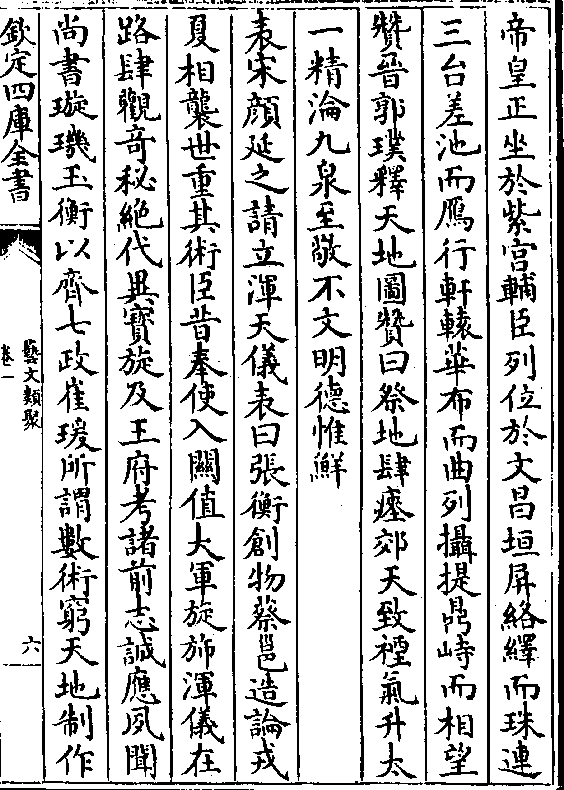 帝皇正坐於紫宫輔臣列位於文昌垣屏絡繹而珠連
三台差池而鴈行軒轅華布而曲列攝提鼎峙而相望
贊晉郭璞釋天地圖贊曰祭地肆瘞郊天致禋氣升太
一精淪九泉至敬不文明德惟鮮
表宋顔延之請立渾天儀表曰張衡創物蔡邕造論戎
夏相襲世重其術臣昔奉使入關值大軍旋斾渾儀在
路肆觀奇秘絶代異寳旋及王府考諸前志誠應夙聞
尚書璇璣玉衡以齊七政崔瑗所謂數術窮天地制作
欽定四庫全書
藝文類聚
卷一
六